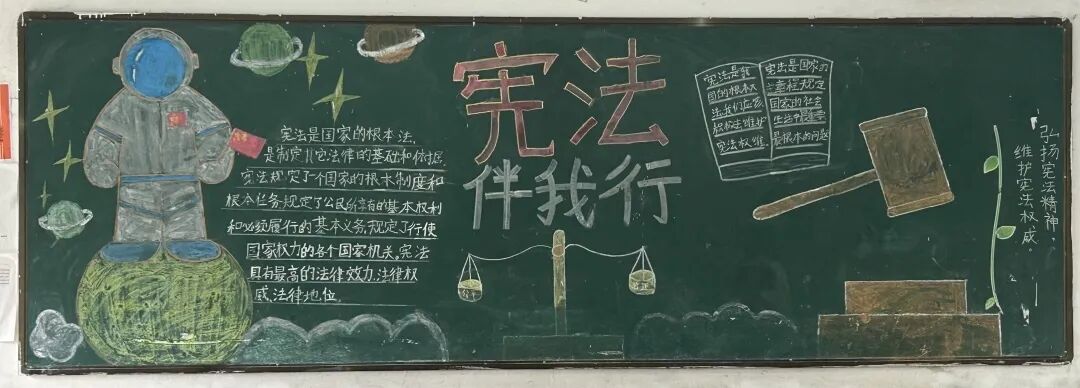 宪法
伴我行
宪法是国家的根本法,
是制定其它法律的基础和依据.
宪法规定了一个国家的根本制度和
根本任务.规定了公民所享有的基本权利
和必须履行的基本义务,规定了行使
国家权力的各个国家机关。宪法
具有最高的法律效力,法律权
威,法律地位.
宪法是我
国的根本大
法,我们应该
积极维护
宪法权威.
宪法是国家的
总章程,规定
国家的社会
生活中
最根本的问题
公平
公正
弘扬宪法精神,
维护宪法权威。